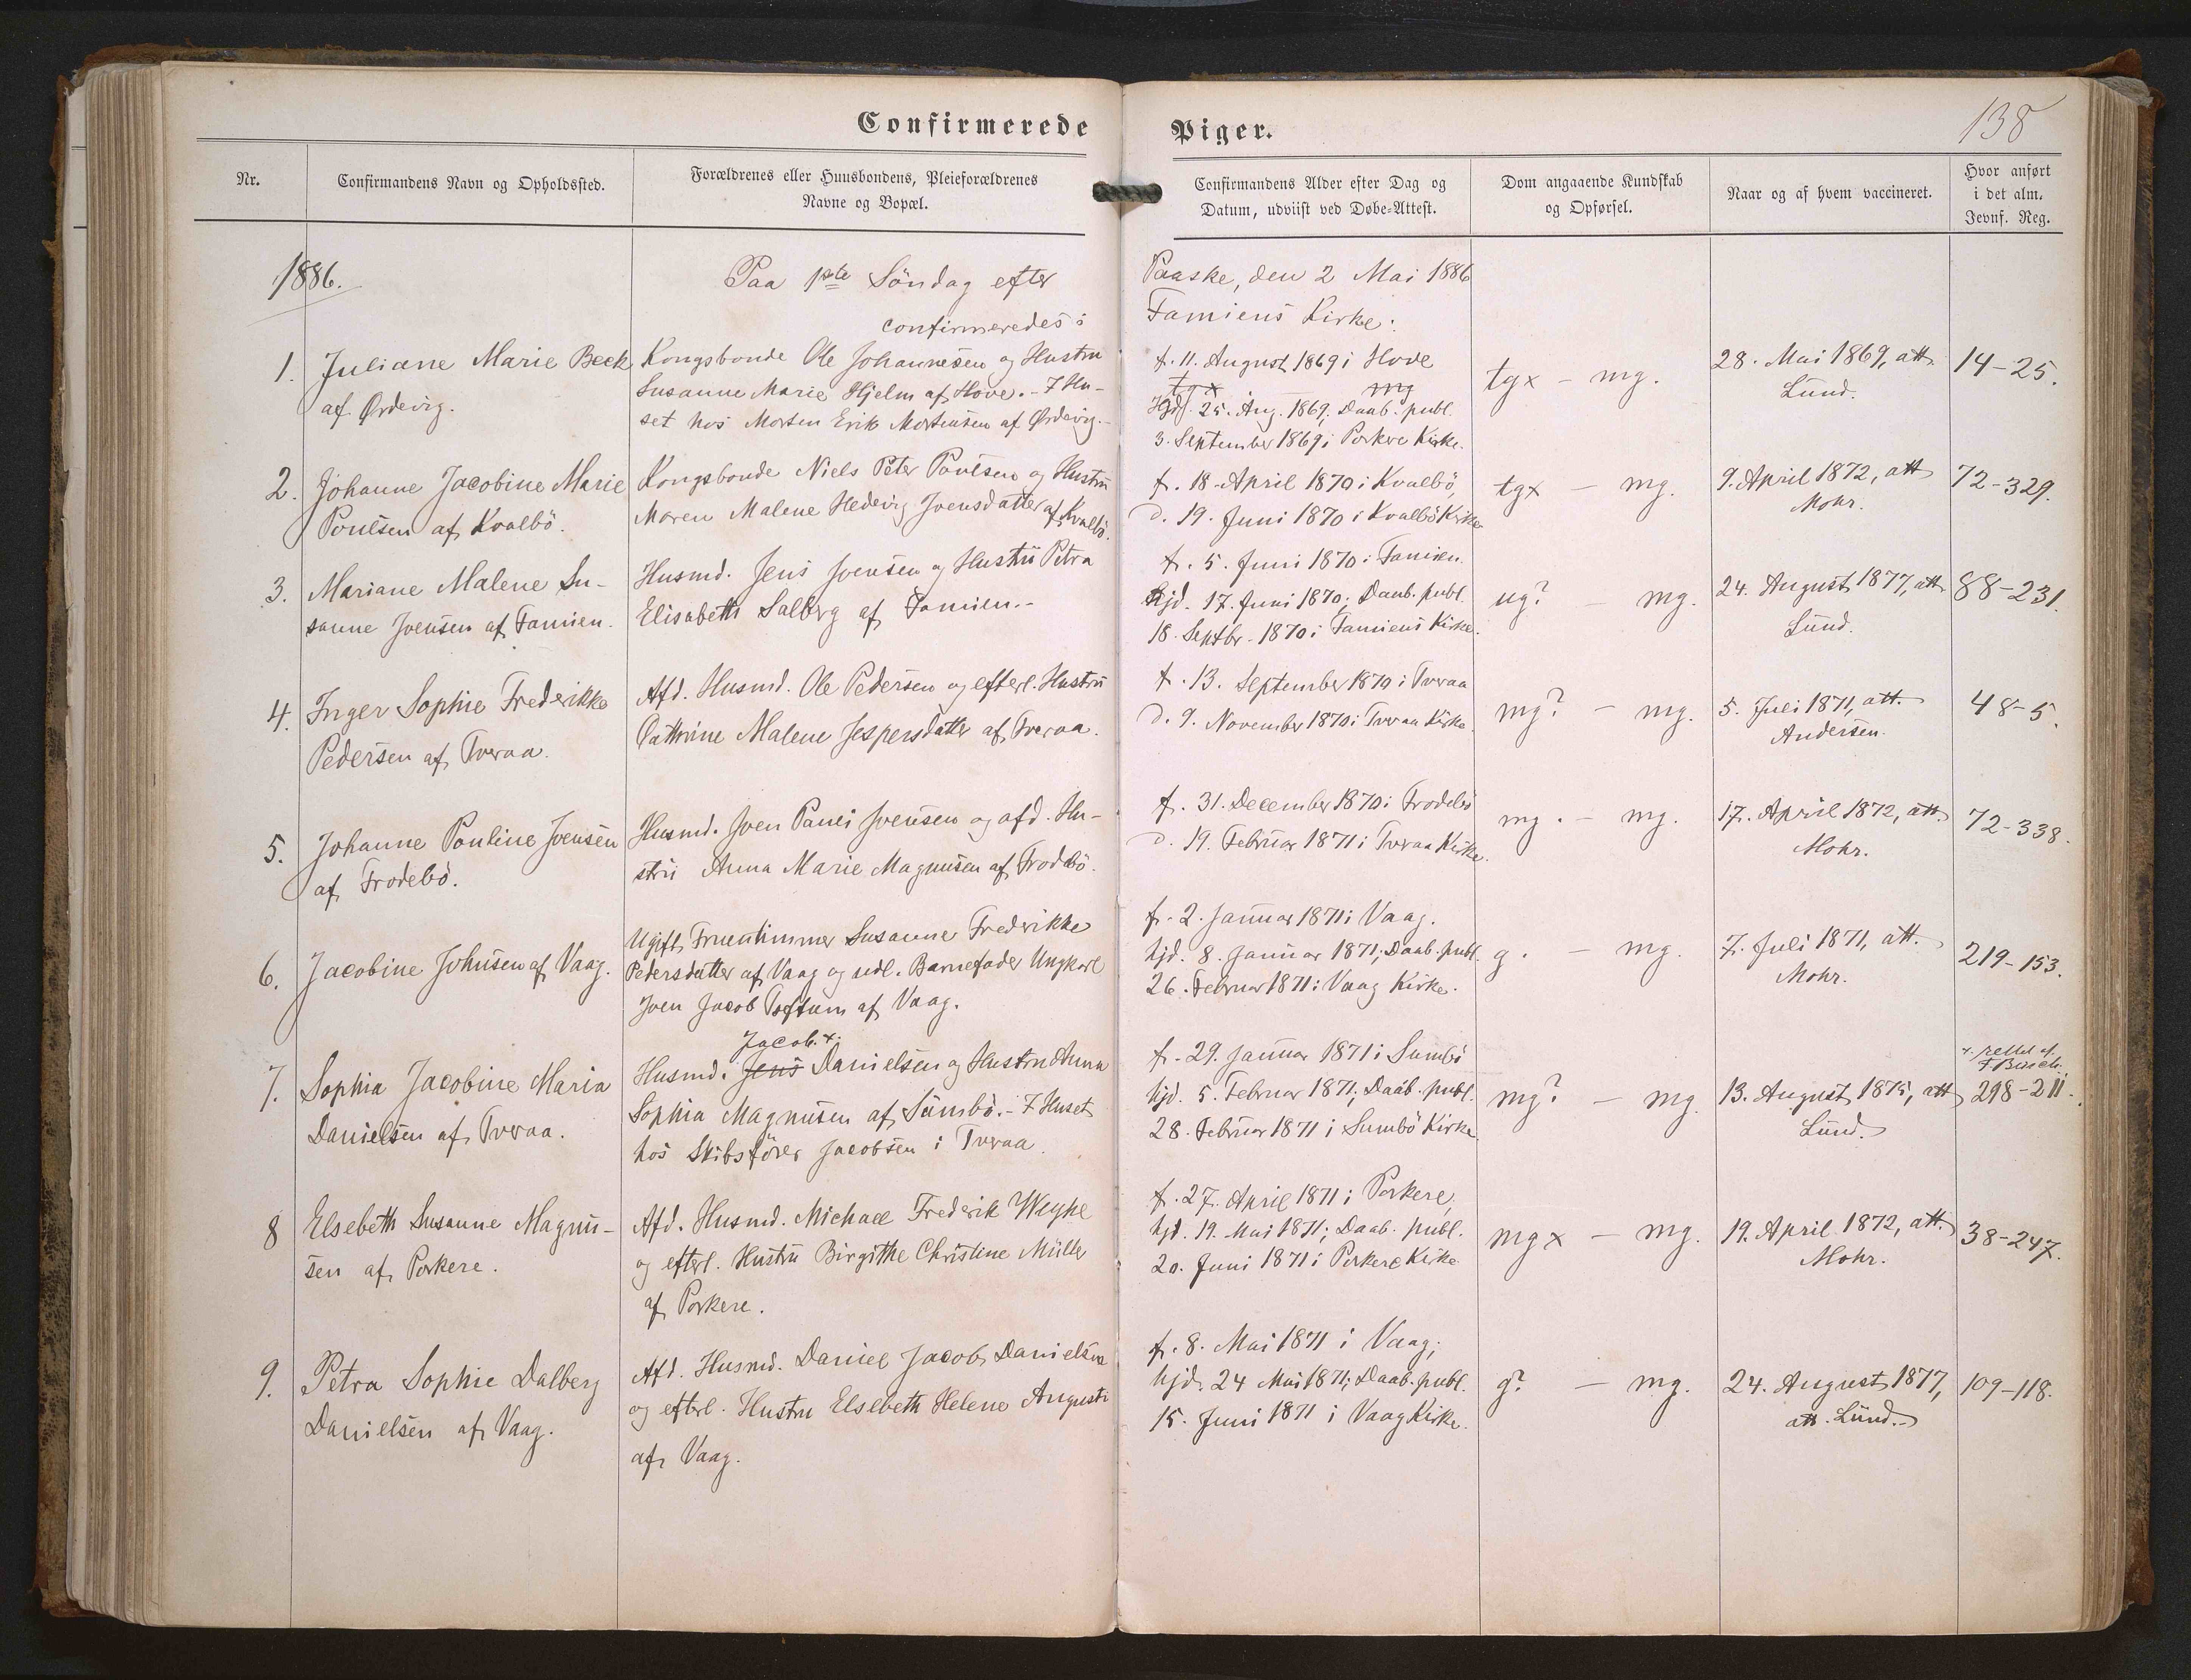 Confirmerede Piger.
138
Nr.
Confirmandens Navn og Opholdssted.
Forældrenes eller Huusbondens, Pleieforældrenes
Navne og Bopæl.
Confirmandens Alder efter Dag og
Datum, udviist ved Døbe-Attest.
Dom angaaende Kundskab
og Opførsel.
Naar og af hvem vaccineret.
Hvor anført
i det alm.
Jevnf. Reg.
1886.
Paa 1ste Söndag efter Paaske, den 2 Mai 1886
confirmeredes i Famiens Kirke:
1.
Juliane Marie Beck
af Ørdevig.
Kongsbonde Ole Johannesen og Hustru
Susanne Marie Hjelm af Hove. - I Hu-
set hos Morten Erik Mortensen af Ørdevig.-
f. 11. August 1869 i Hove
tgx mg
Hjd. 25. Aug. 1869; Daab. publ.
3. September 1869 i Porkere Kirke.
tgx - mg.
28. Mai 1869, att.
Lund.
14-25.
2.
Johanne Jacobine Marie
Poulsen af Kvalbö.
Kongsbonde Niels Peter Poulsen og Hustru
Maren Malene Hedevig Joensdatter af Kvalbö.
f. 18. April 1870 i Kvalbö,
d. 19. Juni 1870 i Kvalbö Kirke
tgx - mg.
9. April 1872, att
Mohr.
72-329.
3.
Mariane Malene Su-
sanne Joensen af Famien.
Husmd. Jens Joensen og Hustru Petra
Elisabeth Salberg af Famien.-
f. 5. Juni 1870 i Famien.
Hjd. 17. Juni 1870; Daab. publ.
18. Septbr. 1870 i Famiens Kirke.
ug? - mg.
24. August 1877, att
Lund.
88-231.
4.
Inger Sophie Frederikke
Pedersen af Tveraa.
Afd. Husmd. Ole Pedersen og efterl. Hustru
Cathrine Malene Jespersdatter af Tveraa.
f. 13. September 1870 i Tveraa
d. 9. November 1870 i Tveraa Kirke.
mg? - mg.
5. Juli 1871, att.
Andersen.
48-5.
5.
Johanne Pouline Joensen
af Frodebö.
Husmd. Joen Pauli Joensen og afd. Hu-
stru Anna Marie Magnusen af Frodebö.
f. 31. December 1870 i Frodebö
d. 19. Februar 1871 i Tveraa Kirke.
mg. - mg.
17. April 1872, att.
Mohr.
72-338.
6.
Jacobine Johnsen af Vaag.
Ugift Fruentimmer Susanne Frederikke
Pedersdatter af Vaag og udl. Barnefader Ungkarl
Joen Jacob Toftum af Vaag.
f. 2. Januar 1871 i Vaag.
hjd. 8. Januar 1871; Daab. publ.
26. Februar 1871 i Vaag Kirke.
g. - mg.
7. Juli 1871, att.
Mohr.
219-153.
7.
Sophia Jacobine Maria
Danielsen af Tveraa.
Jacob. x
Husmd. Jens Danielsen og Hustru Anna
Sophia Magnusen af Sumbö. - I Huset
hos Skibsförer Jacobsen i Tveraa.
f. 29. Januar 1871 i Sumbö
hjd. 5. Februar 1871; Daab. publ.
28. Februar 1871 i Sumbö Kirke
mg? - mg.
13. August 1875, att
Lund.
x. rettet af
298-211.
8
Elsebeth Susanne Magnu-
sen af Porkere.
Afd. Husmd. Michael Frederik Weyhe
og efterl. Hustru Birgithe Christine Müller
af Porkere.
f. 27. April 1871 i Porkere,
hjd. 19. Mai 1871; Daab. publ.
20. Juni 1871 i Porkere Kirke
mgx - mg.
19. April 1872, att.
Mohr.
38-247.
9.
Petra Sophie Dalberg
Danielsen af Vaag.
Afd. Husmd. Daniel Jacob Danielsen
og efterl. Hustru Elsebeth Helene Augusti
af Vaag.
f. 8. Mai 1871 i Vaag;
hjd. 24 Mai 1871; Daab. publ.
15. Juni 1871 i Vaag Kirke.
g? - mg.
24. August 1877,
att. Lund.
109-118.